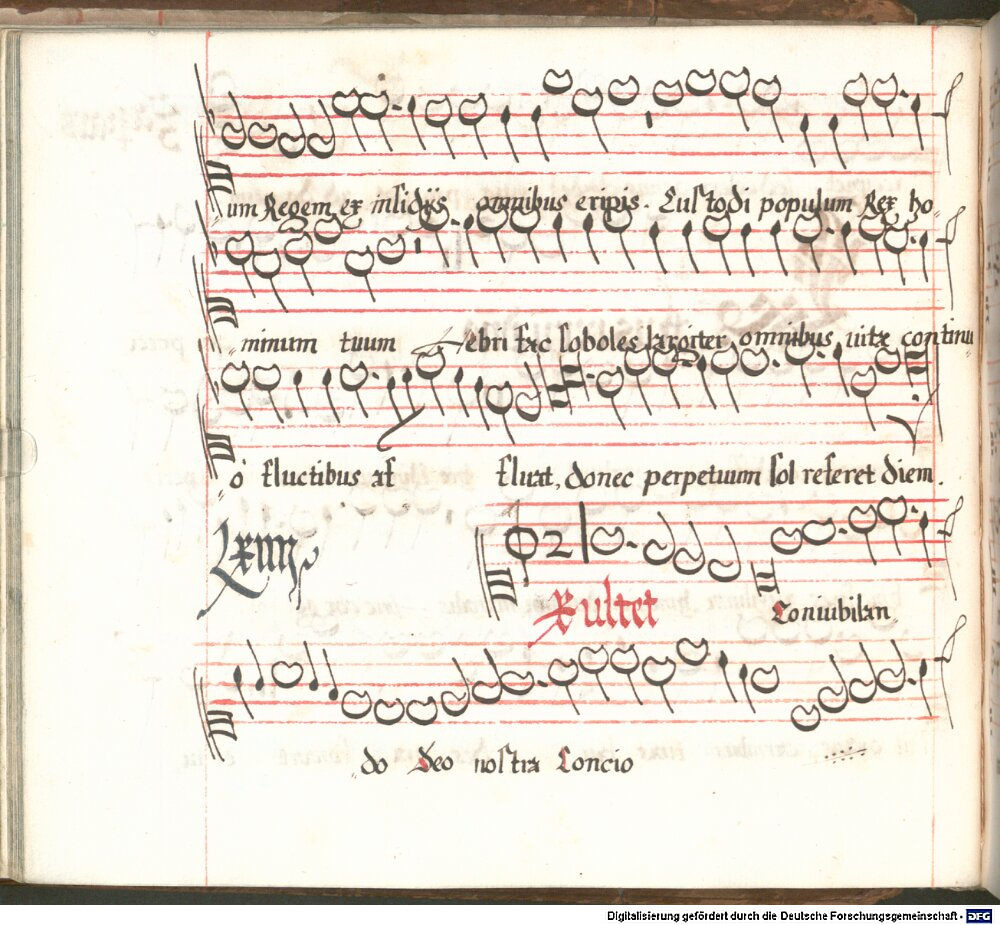 um Regem ex insidijs omnibus eripis. Custodi populum Rex ho
minum tuum Hebri fac soboles largiter omnibus uitæ continu
ó fluctibus af fluat, donec perpetuum sol referet diem.
Lxiiij
Φ2
Exultet Coniubilan
do Deo nostra Concio
Digitalisierung gefördert durch die Deutsche Forschungsgemeinschaft - DFG